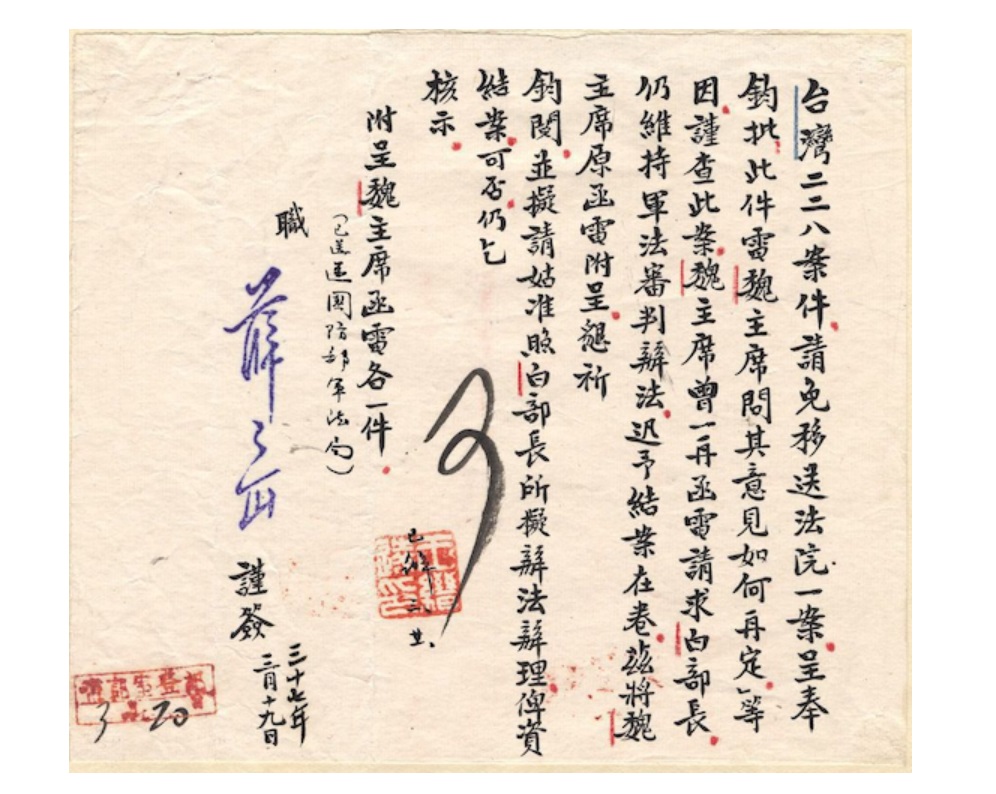 台灣二二八案件請免移送法院一案呈奉
鈞批此件電魏主席問其意見如何再定」等
因謹查此案魏主席曾一再函電請求白部長
仍維持軍法審判辦法迅予結案在卷茲將魏
主席原函電附呈懇祈
鈞閱並擬請姑准照白部長所擬辦法辦理俾資
結案可否仍乞
核示
附呈魏主席函電各一件
(已送還國防部軍法局)
職
薛岳
謹簽
三十七年
三月十九日
可
3 20